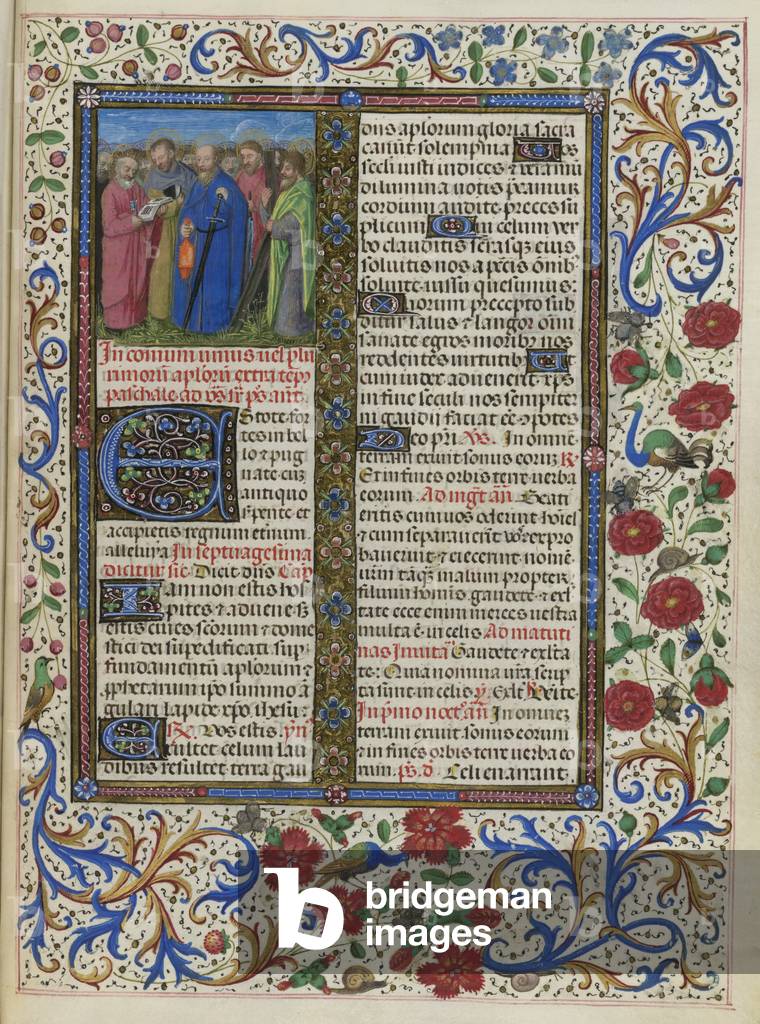 In comuni unius uel plu
rimorū aplorū extra temp
paschale ad v̄s s̄r p̄s ant.
Estote for
tes in bel
lo & pug
nate cuz
antiquo
s̄pente et
accipietis regnum eternum
alleluya In septuagesima
dicitur sic. Dicit dn̄s Cap
Iam non estis hos
pites & aduene sz
estis ciues scorum & dome
stici dei supedificati sup
fundamentū aplorum &
ꝓphetarum ipo summo a
gulari lapide xpo ihesu:
Vos estis. ymn
Exultet celum lau
dibus resultet terra gau
diis aplorum gloria sacra
canūt solempnia Vos
secli iusti iudices & vera mū
di lumina uotis p̄camur
cordium audite preces su
plicum Qui celum ver
bo clauditis serasque eius
soluitis nos a pctis omīb
soluite iussu quesumus:
Quorum precepto sub
ditur salus & langor oīm
sanate egros moribus nos
reddentes uirtutib Ut
cum iudex aduenerit xps
in fine secli nos sempiter
ni gaudii faciat ēē cōpotes
Deo pri. Vs. In omnē
terram exiuit sonus eorum R
Et in fines orbis terre verba
eorum. Ad mgt añ. Beati
eritis cum uos oderint hoīes
& cum separauerīt vos & expro
bauerint & eiecerint nomē
urm tāqz malum propter
filium homīs gaudete & exl
tate ecce enim merces uestra
multa ē in celis Ad matuti
nas Inuitat Gaudete & exlta
te: Quia nomina vra scrip
ta sunt in celis
In primo noct añ In omnez
terram exiuit sonus eorum
& in fines orbis terre verba eo
rum. ps. d. Celi enarrant.
b bridgeman
images